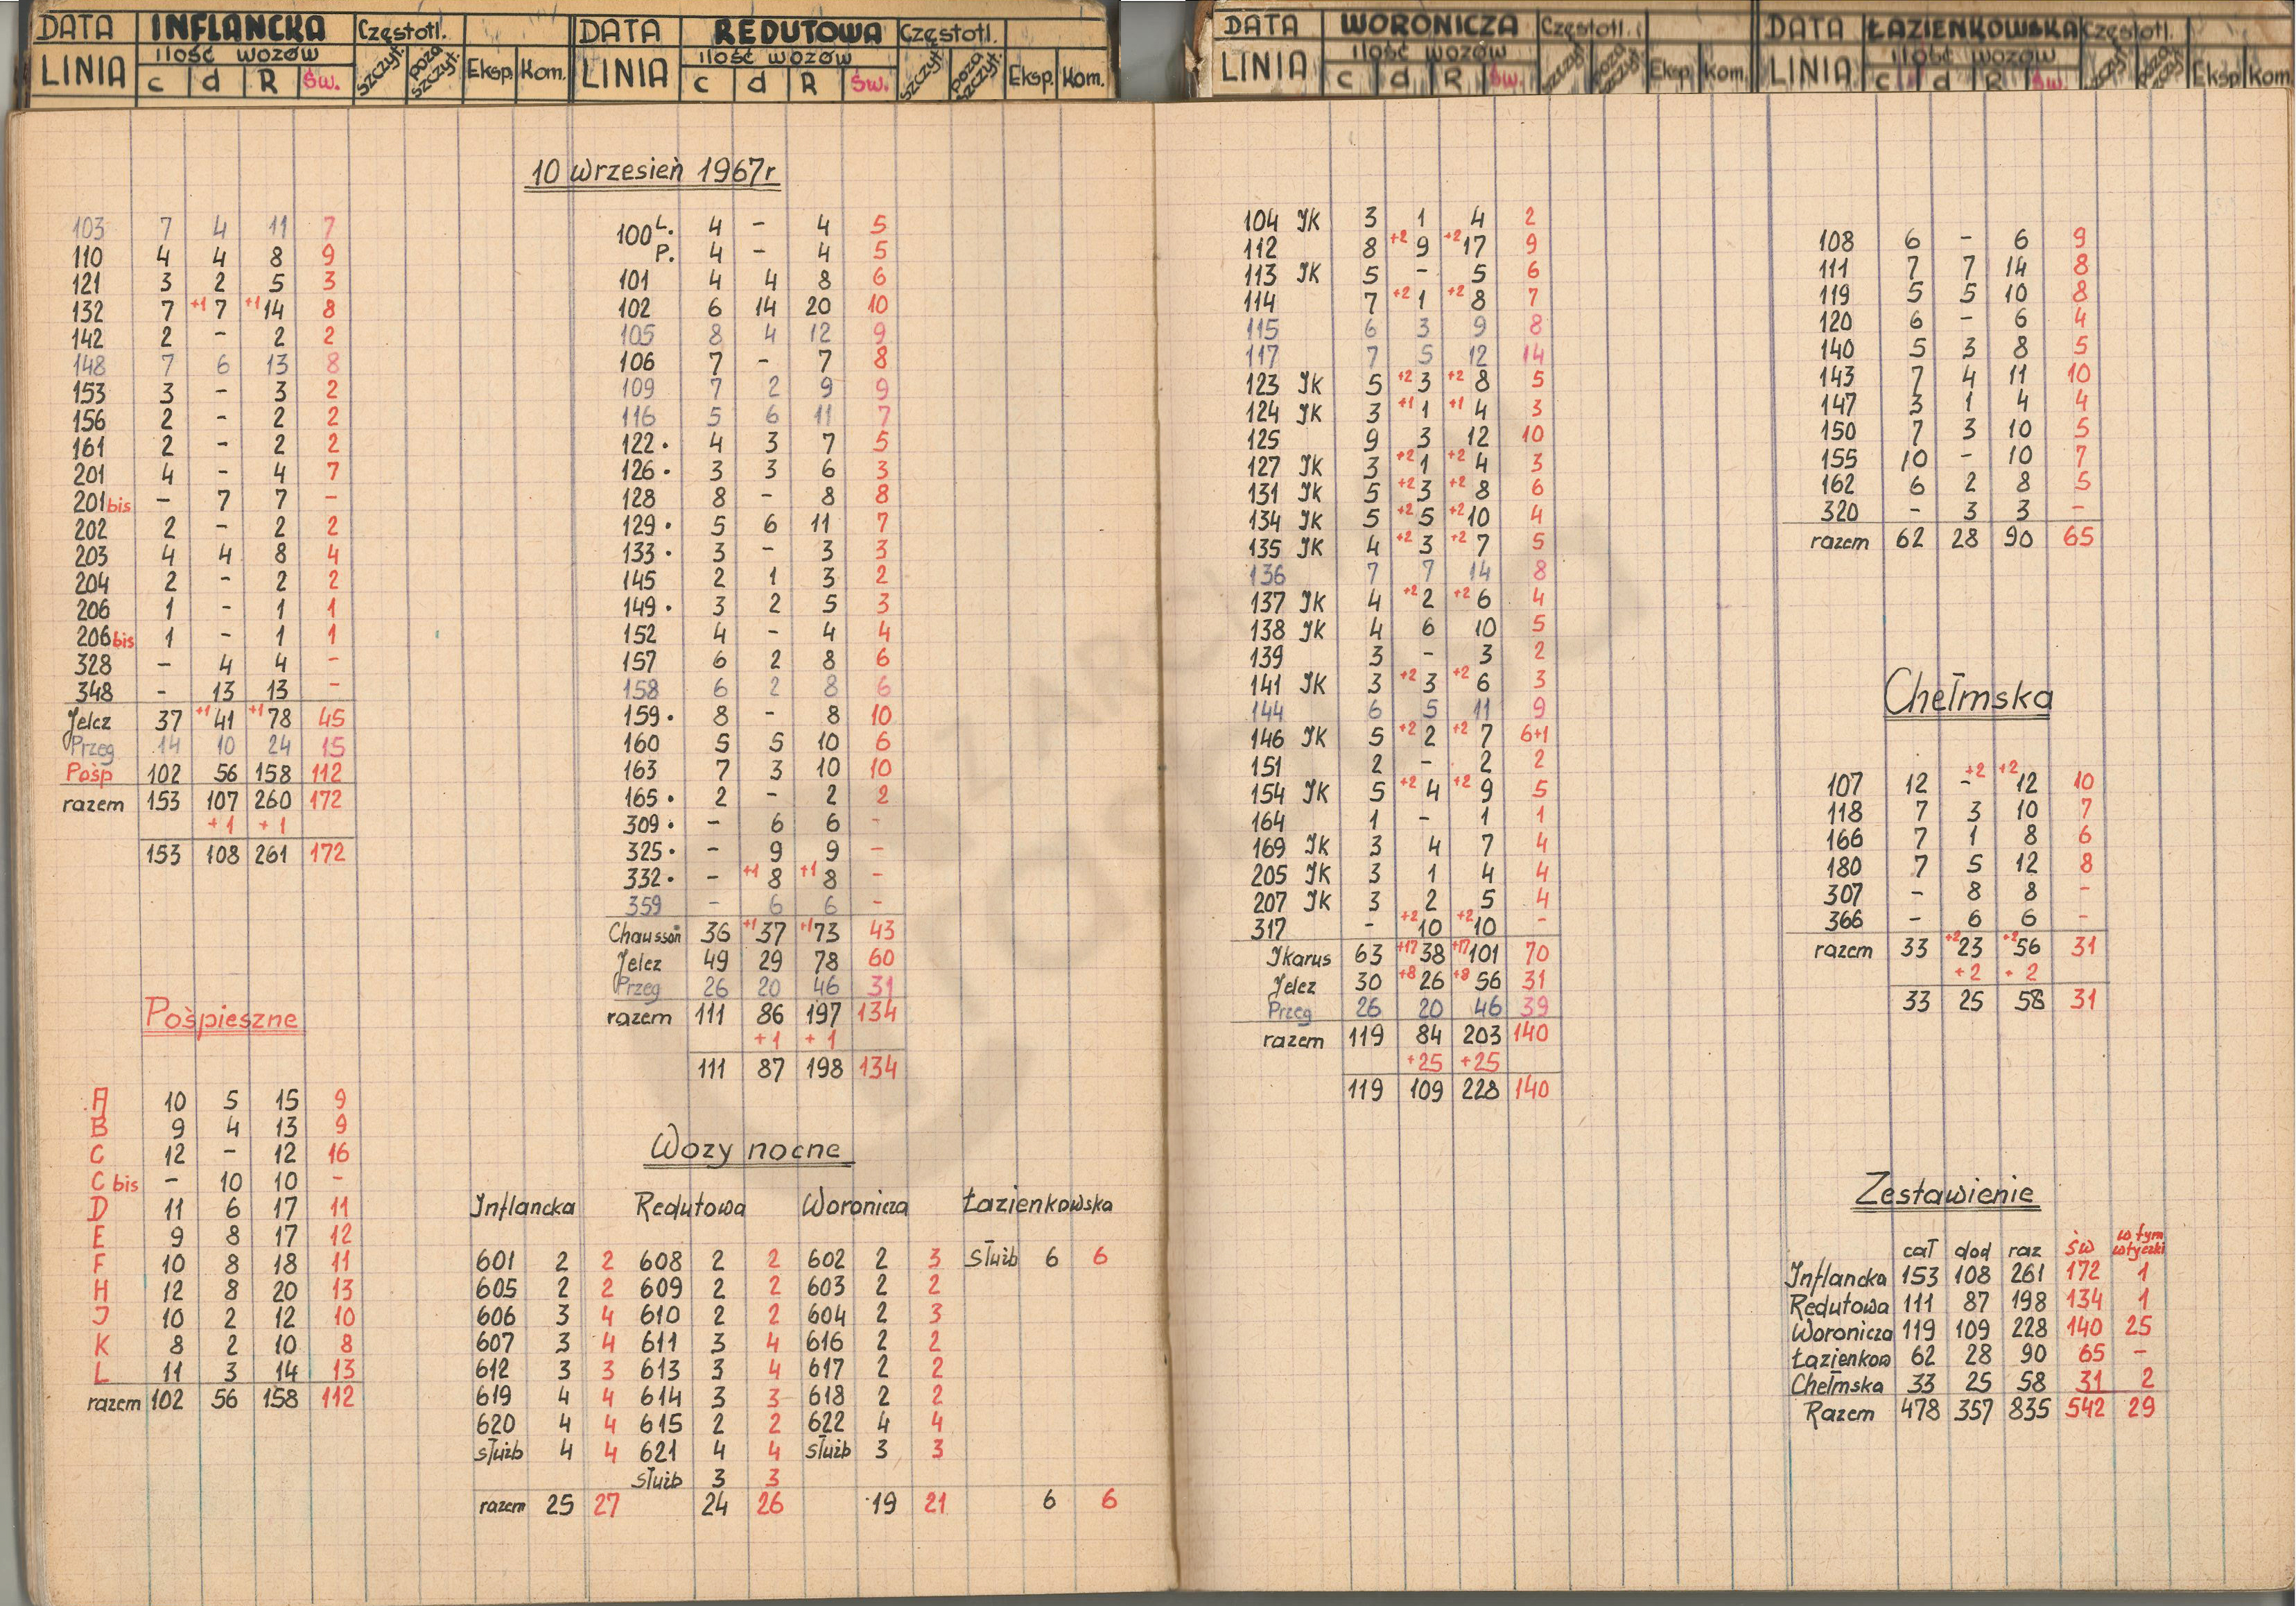 DATA INFLANCKA Częstotl.
LINIA ilość wozów
c d R św. szczyt. poza szczyt. Eksp. Kom.
DATA REDUTOWA Częstotl.
LINIA ilość wozów
c d R św. szczyt. poza szczyt. Eksp. Kom.
DATA WORONICZA Częstotl.
LINIA ilość wozów
c d R św. szczyt poza szczyt. Eksp. Kom.
DATA ŁAZIENKOWSKA Częstotl.
LINIA ilość wozów
c d R św. szczyt. poza szczyt. Eksp. Kom
10 wrzesień 1967r
103 7 4 11 7
110 4 4 8 9
121 3 2 5 3
132 7 +1 7 +1 14 8
142 2 - 2 2
148 7 6 13 8
153 3 - 3 2
156 2 - 2 2
161 2 - 2 2
201 4 - 4 7
201 bis - 7 7 -
202 2 - 2 2
203 4 4 8 4
204 2 - 2 2
206 1 - 1 1
206 bis 1 - 1 1
328 - 4 4 -
348 - 13 13 -
Jelcz 37 +1 41 +1 78 45
Przeg 14 10 24 15
Pośp 102 56 158 112
razem 153 107 260 172
+1 +1
153 108 261 172
Pośpieszne
A 10 5 15 9
B 9 4 13 9
C 12 - 12 16
C bis - 10 10 -
D 11 6 17 11
E 9 8 17 12
F 10 8 18 11
H 12 8 20 13
J 10 2 12 10
K 8 2 10 8
L 11 3 14 13
razem 102 56 158 112
100 L. 4 - 4 5
P. 4 - 4 5
101 4 4 8 6
102 6 14 20 10
105 8 4 12 9
106 7 - 7 8
109 7 2 9 9
116 5 6 11 7
122 • 4 3 7 5
126 • 3 3 6 3
128 8 - 8 8
129 • 5 6 11 7
133 • 3 - 3 3
145 2 1 3 2
149 • 3 2 5 3
152 4 - 4 4
157 6 2 8 6
158 6 2 8 6
159 • 8 - 8 10
160 5 5 10 6
163 7 3 10 10
165 • 2 - 2 2
309 • - 6 6 -
325 • - 9 9 -
332 • - +1 8 +1 8 -
359 - 6 6 -
Chausson 36 +1 37 +1 73 43
Jelcz 49 29 78 60
Przeg 26 20 46 31
razem 111 86 197 134
+1 +1
111 87 198 134
Wozy nocne
Inflancka Redutowa Woronicza Łazienkowska
601 2 2 608 2 2 602 2 3 służb 6 6
605 2 2 609 2 2 603 2 2
606 3 4 610 2 2 604 2 3
607 3 4 611 3 4 616 2 2
612 3 3 613 3 4 617 2 2
619 4 4 614 3 3 618 2 2
620 4 4 615 2 2 622 4 4
służb 4 4 621 4 4 służb 3 3
służb 3 3
razem 25 27 24 26 19 21 6 6
104 JK 3 1 4 2
112 8 +2 9 +2 17 9
113 JK 5 - 5 6
114 7 +2 1 +2 8 7
115 6 3 9 8
117 7 5 12 14
123 JK 5 +2 3 +2 8 5
124 JK 3 +1 1 +1 4 3
125 9 3 12 10
127 JK 3 +2 1 +2 4 3
131 JK 5 +2 3 +2 8 6
134 JK 5 +2 5 +2 10 4
135 JK 4 +2 3 +2 7 5
136 7 7 14 8
137 JK 4 +2 2 +2 6 4
138 JK 4 6 10 5
139 3 - 3 2
141 JK 3 +2 3 +2 6 3
144 6 5 11 9
146 JK 5 +2 2 +2 7 6+1
151 2 - 2 2
154 JK 5 +2 4 +2 9 5
164 1 - 1 1
169 JK 3 4 7 4
205 JK 3 1 4 4
207 JK 3 2 5 4
317 - +2 10 +2 10 -
Jkarus 63 +17 38 +17 101 70
Jelcz 30 +8 26 +8 56 31
Przeg 26 20 46 39
razem 119 84 203 140
+25 +25
119 109 228 140
108 6 - 6 9
111 7 7 14 8
119 5 5 10 8
120 6 - 6 4
140 5 3 8 5
143 7 4 11 10
147 3 1 4 4
150 7 3 10 5
155 10 - 10 7
162 6 2 8 5
320 - 3 3 -
razem 62 28 90 65
Chełmska
107 12 - +2 +2 12 10
118 7 3 10 7
166 7 1 8 6
180 7 5 12 8
307 - 8 8 -
366 - 6 6 -
razem 33 +2 23 +2 56 31
+2 + 2
33 25 58 31
Zestawienie
cał dod raz św w tym wtyczki
Inflancka 153 108 261 172 1
Redutowa 111 87 198 134 1
Woronicza 119 109 228 140 25
Łazienkow 62 28 90 65 -
Chełmska 33 25 58 31 2
Razem 478 357 835 542 29